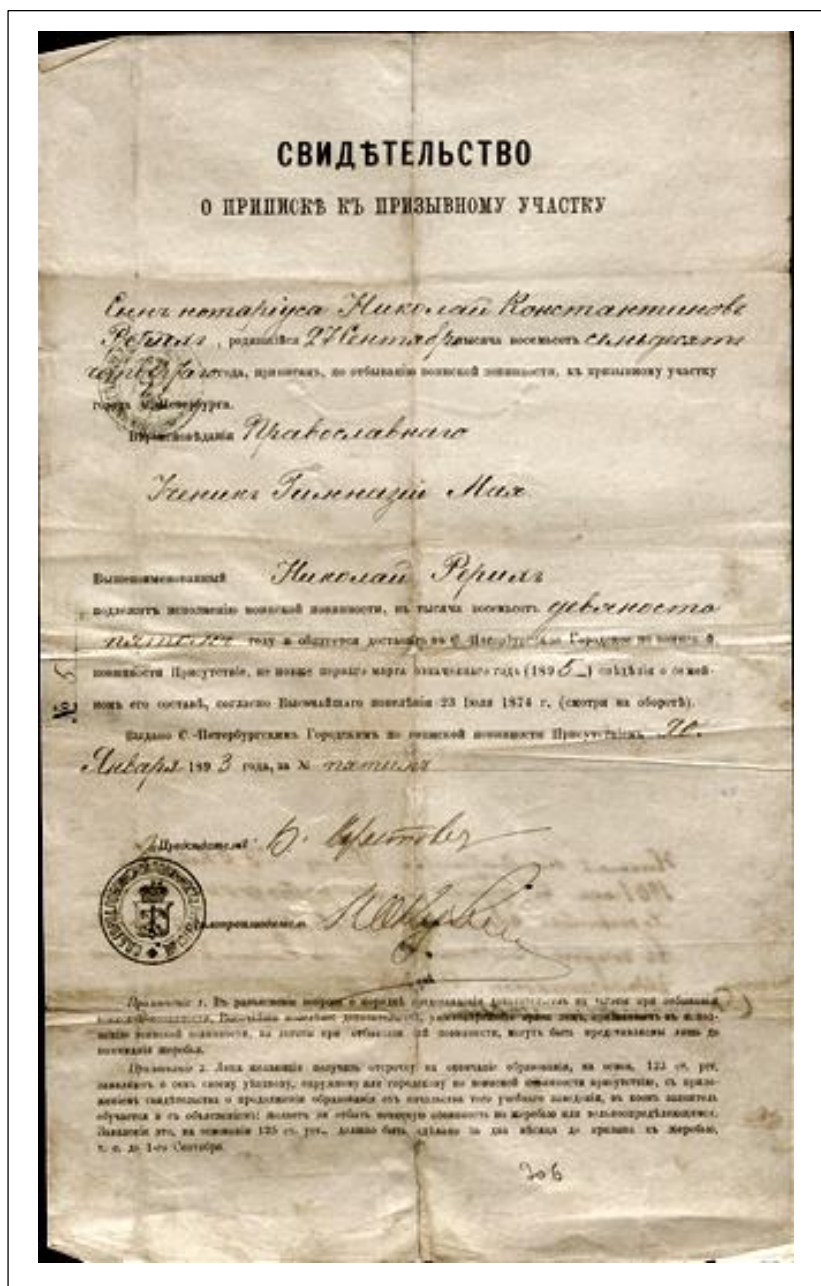 СВИДѢТЕЛЬСТВО
О ПРИПИСКѢ КЪ ПРИЗЫВНОМУ УЧАСТКУ
Сынъ нотаріуса Николай Константиновъ
Рерихъ, родившійся 27 Сентября тысяча восемьсотъ семьдесятъ
четвертаго года, приписанъ, по отбыванію воинской повинности, къ призывному участку
города С.-Петербурга.
Вѣроисповѣданія Православнаго
Ученикъ Гимназіи Мая.
Вышепоименованный Николай Рерихъ
подлежитъ исполненію воинской повинности, въ тысяча восемьсотъ девяносто
пятомъ году и обязуется доставить въ С.-Петербургское Городское по воинской
повинности Присутствіе, не позже перваго марта означеннаго года (1895) свѣдѣнія о семей-
номъ его составѣ, согласно Высочайшаго повелѣнія 23 Іюля 1874 г. (смотри на оборотѣ).
№ 5
Выдано С.-Петербургскимъ Городскимъ по воинской повинности Присутствіемъ 20.
Января 1893 года, за № пятымъ
Предсѣдатель
Дѣлопроизводитель
Примѣчаніе 1. Въ разъясненіе вопроса о порядкѣ представленія доказательствъ на льготы при отбываніи
воинской повинности, Высочайше повелѣно:
воинской повинности, на льготы при отбываніи сей повинности, могутъ быть представляемы лишь до
вынутія жеребья.
Примѣчаніе 2. Лица желающія получить отсрочку на окончаніе образованія, на основ. 125 ст. уст.
заявляютъ о семъ своему уѣздному, окружному или городскому по воинской повинности присутствію, съ прило-
женіемъ свидѣтельства о продолженіи образованія отъ начальства того учебнаго заведенія, въ коемъ заявитель
обучается и съ объясненіемъ: желаетъ ли отбыть воинскую повинность по жеребью или вольноопредѣляющимся.
Заявленіе это, на основаніи 125 ст. уст., должно быть сдѣлано за два мѣсяца до призыва къ жеребью,
т. е. до 1-го Сентября.
306